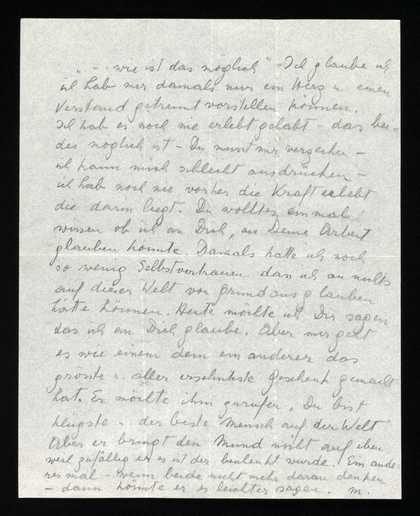 "- - wie ist das möglich" - Ich glaube ich
ich hab mir damals nur ein Herz u. einen
Verstand getrennt vorstellen können.
Ich hab es noch nie erlebt gehabt - das bei-
des möglich ist - Du musst mir verzeihen -
ich kann mich schlecht ausdrücken -
ich hab noch nie vorher die Kraft erlebt
die darin liegt. Du wolltest einmal
wissen ob ich an Dich, an Deine Arbeit
glauben könnte. Damals hatte ich noch
so wenig Selbstvertrauen dass ich an nichts
auf dieser Welt von Grund aus glauben
hätte können. Heute möchte ich Dir sagen
das ich an Dich glaube. Aber mir geht
es wie einem dem ein anderer das
grösste u. aller ersehnteste Geschenk gemacht
hat. Er möchte ihm zurufen, Du bist
klügste u. der beste Mensch auf der Welt
Aber er bringt den Mund nicht auf eben
weil zufällig er es ist der beschenkt wurde. Ein ande-
res mal - wenn beide nicht mehr daran denken
- dann könnte er es leichter sagen. M.